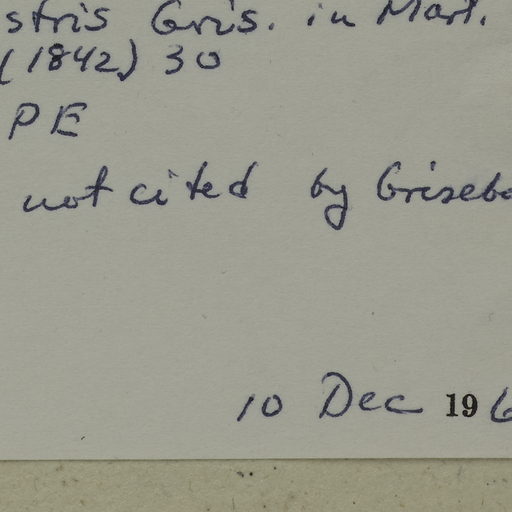 stris Gris. in Mart.
(1842) 30
PE
not cited by Griseb
10 Dec 196